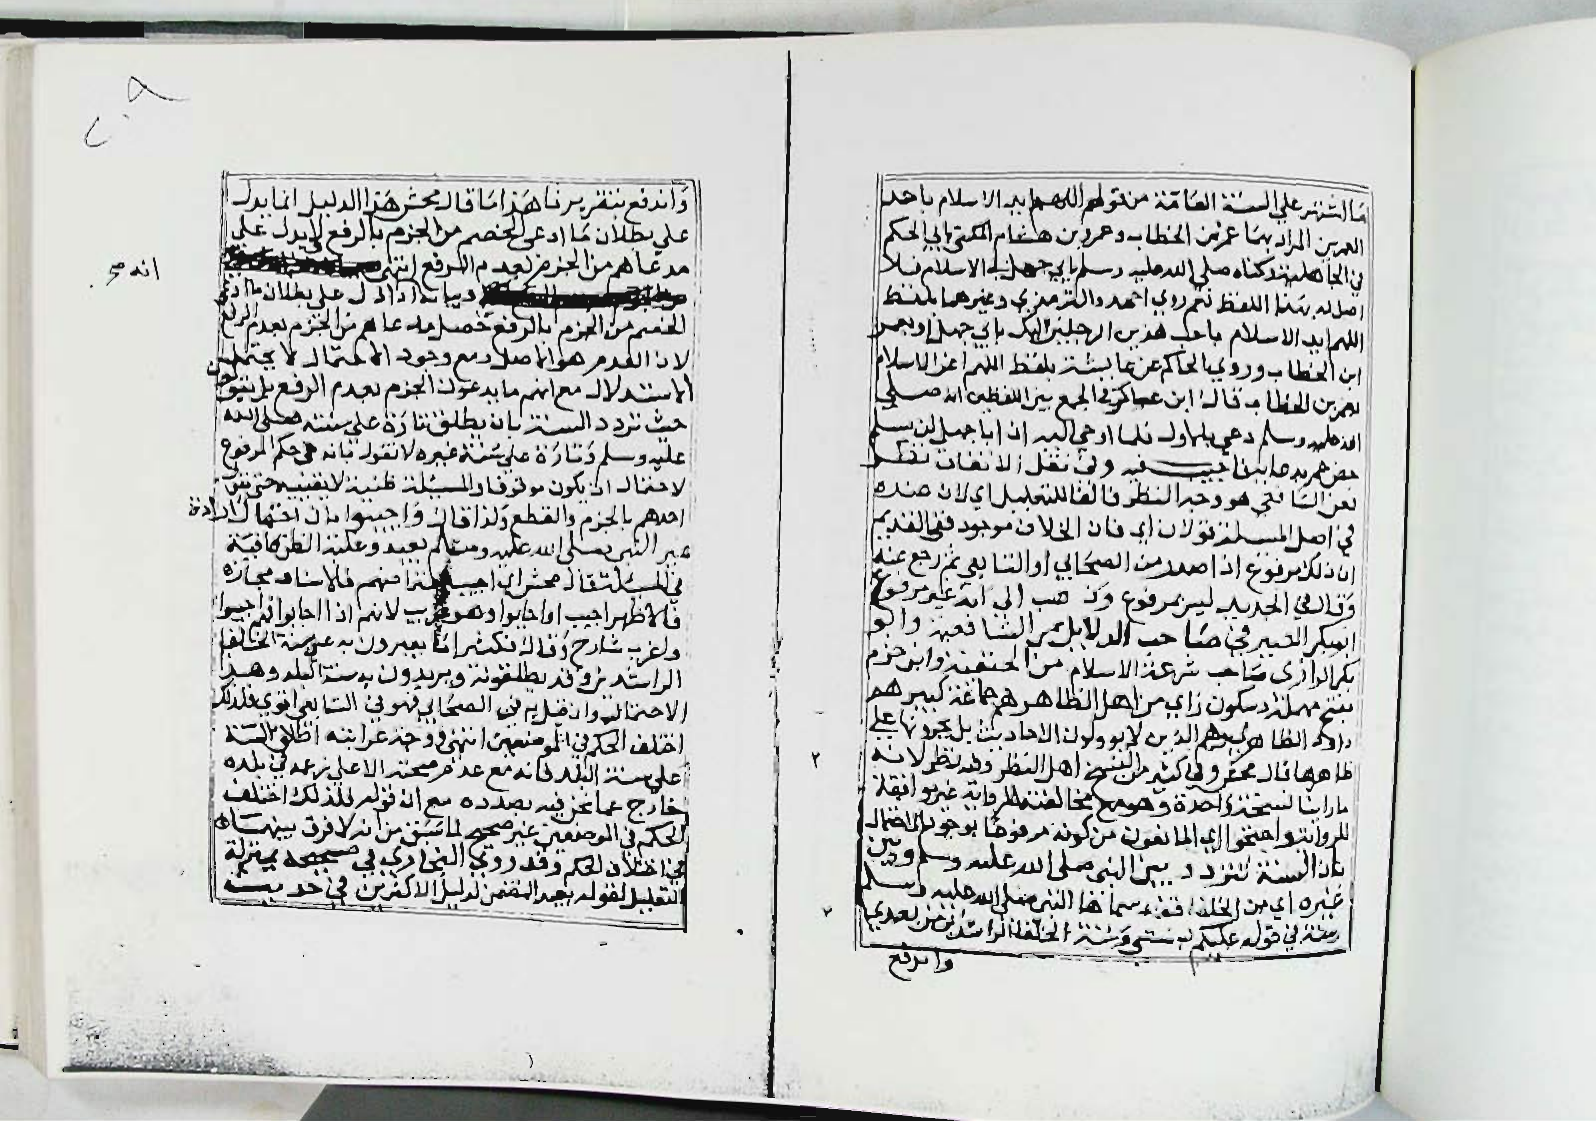 ما اشتهر علي السنة العامة من قولهم اللهم ايد الاسلام باحد
العمرين المراد بهما عمر بن الخطاب وعمرو بن هشام المكني بابي الحكم
في الجاهلية وكناه صلي الله عليه وسلم بابي جهل في الاسلام فلا
اصل له بهذا اللفظ نعم روي احمد والترمذي وغيرهما بلفظ
اللهم ايد الاسلام باحب هذين الرجلين اليك بابي جهل او بعمر
ابن الخطاب وروي الحاكم عن عايشة بلفظ اللهم اعز الاسلام
بعمر بن الخطاب قال ابن عساكر في الجمع بين اللفظين انه صلي
الله عليه وسلم دعي بالاول فلما اوحي اليه ان ابا جهل لن يسلم
خص عمر بدعايه وفي نقل الاتفاق نظر
فعن الشافعي هو وجه النظر فالفا للتعليل اي لان عنده
في اصل المسلة قولان اي فان الخلاف موجود ففي القديم
ان ذلك مرفوع اذا صدر من الصحابي او التابعي ثم رجع عنه
وقال في الجديد ليس بمرفوع وذهب الي انه غير مرفوع
ابو بكر الصيرفي صاحب الدلايل من الشافعية وابو
بكر الرازي صاحب شرعة الاسلام من الحنفية وابن حزم
بفتح مهملة وسكون زاي من اهل الظاهر هم جماعة كبيرهم
داود الظاهري وهم الذين لا يؤولون الاحاديث بل يجرونها علي
ظاهرها قال محش وفي كثير من النسخ اهل النظر وفيه نظر لانه
ما راينا نسخة واحدة وهو مع مخالفته للرواية غير موافقة
للدراية واحتجوا اي المانعون من كونه مرفوعا بوجود الاحتمال
بان السنة تتردد بين النبي صلي الله عليه وسلم وبين
غيره اي من الخلفاء سماها النبي صلي الله عليه وسلم
سنة في قوله عليكم بسنتي وسنة الخلفا الراشدين من بعدي
واندفع
واندفع بتقريرنا هذا ما قال محش هذا الدليل انما يدل
علي بطلان ما ادعي الخصم من الجزم بالرفع لا يدل علي
مدعاهم من الجزم بعدم الرفع انتهي
انه صح
وبيانه اذا دل علي بطلان ما ادعي
الخصم من الجزم بالرفع حصل مدعاهم من الجزم بعدم الرفع
لان العدم هو الاصل ومع وجود الاحتمال لا يحتمل
الاستدلال مع انهم ما يدعون الجزم بعدم الرفع بل يقولون
حيث تردد السنة بان يطلق تارة علي سنته صلي الله
عليه وسلم وتارة علي سنة غيره لا نقول بانه في حكم المرفوع
لاحتمال ان يكون موقوفا والمسلة ظنية لا يقينية حتي
احدهم بالجزم والقطع ولذا قال واجيبوا بان احتمال ارادة
غير النبي صلي الله عليه وسلم بعيد وغلبة الظن كافية
في المسلة قال محش اي اجيب فالاسناد مجازه
فالاظهر اجيب او اجابوا وهو لانهم اذا اجابوا فهم اجيبوا
واغرب شارح وقال فكثيرا ما يعبرون به عن سنة الخلفا
الراشدين وقد يطلقونه ويريدون به سنة البلد وهذا
الاحتمال وان قيل به في الصحابي فهو في التابعي اقوي فلذلك
اختلف الحكم في الموضعين انتهي ووجه غرابته اطلاق السنة
علي سنة البلد فانه مع عدم صحته الا علي زعمه في بلده
خارج عما نحن فيه بصدده مع ان قوله فلذلك اختلف
الحكم في الموضعين غير صحيح لما سبق من انه لا فرق بينهما
في اختلاف الحكم وقد روي البخاري في صحيحه بمنزلة
التعليل لقوله بعيد المتضمن لدليل الاكثرين في حديث